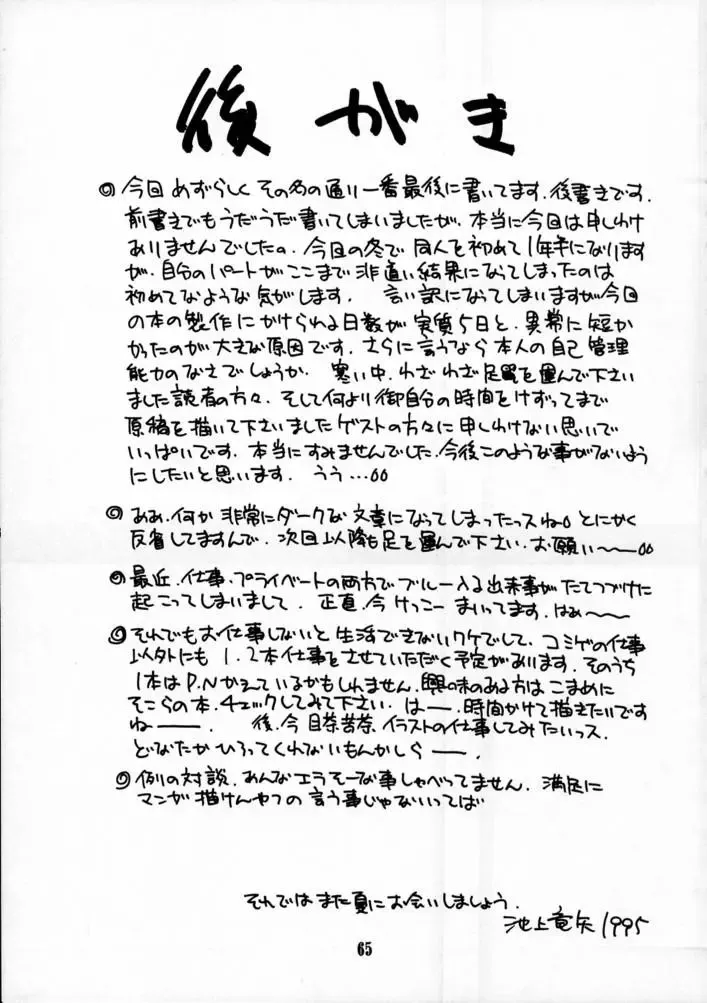 後がき
◎今回めずらしくその名の通り一番最後に書いてます.後書きです.
前書きでもうだうだ書いてしまいましたが.本当に今回は申しわけ
ありませんでしたの.今回の冬で同人を初めて1年半になります
が.自分のパートがここまで非道い結果になってしまったのは
初めてなような気がします. 言い訳になってしまいますが今回
の本の製作にかけられる日数が実質5日と.異常に短か
かったのが大きな原因です.さらに言うなら本人の自己管理
能力のなさでしょうか. 寒い中.わざわざ足を運んで下さい
ました読者の方々.そして何より御自分の時間をけずってまで
原稿を描いて下さいましたゲストの方々に申しわけない思いで
いっぱいです.本当にすみませんでした.今後このような事がないよう
にしたいと思います. うぅ…。。
◎ああ.何か非常にダークな文章になってしまったっスね。とにかく
反省してますんで.次回以降も足を運んで下さい.お願い〜〜。。
◎最近.仕事.プライベートの両方でブルー入る出来事がたてつづけに
起こってしまいまして.正直.今けっこーまいってます.はぁ〜〜
◎それでもお仕事しないと生活できないワケでして.コミケの仕事
以外にも1.2本仕事をさせていただく予定があります.そのうち
1本はP.Nかえているかもしれません.興味のある方はこまめに
そこらの本.チェックしてみて下さい. はー.時間かけて描きたいです
ねー. 後.今目茶苦茶イラストの仕事してみたいっス.
どなたかひろってくれないもんかしらー.
◎例の対談.あんなエラそーな事しゃべってません.満足に
マンガ描けんヤツの言う事じゃないってば
それではまた夏にお会いしましょう.
池上竜矢1995
65